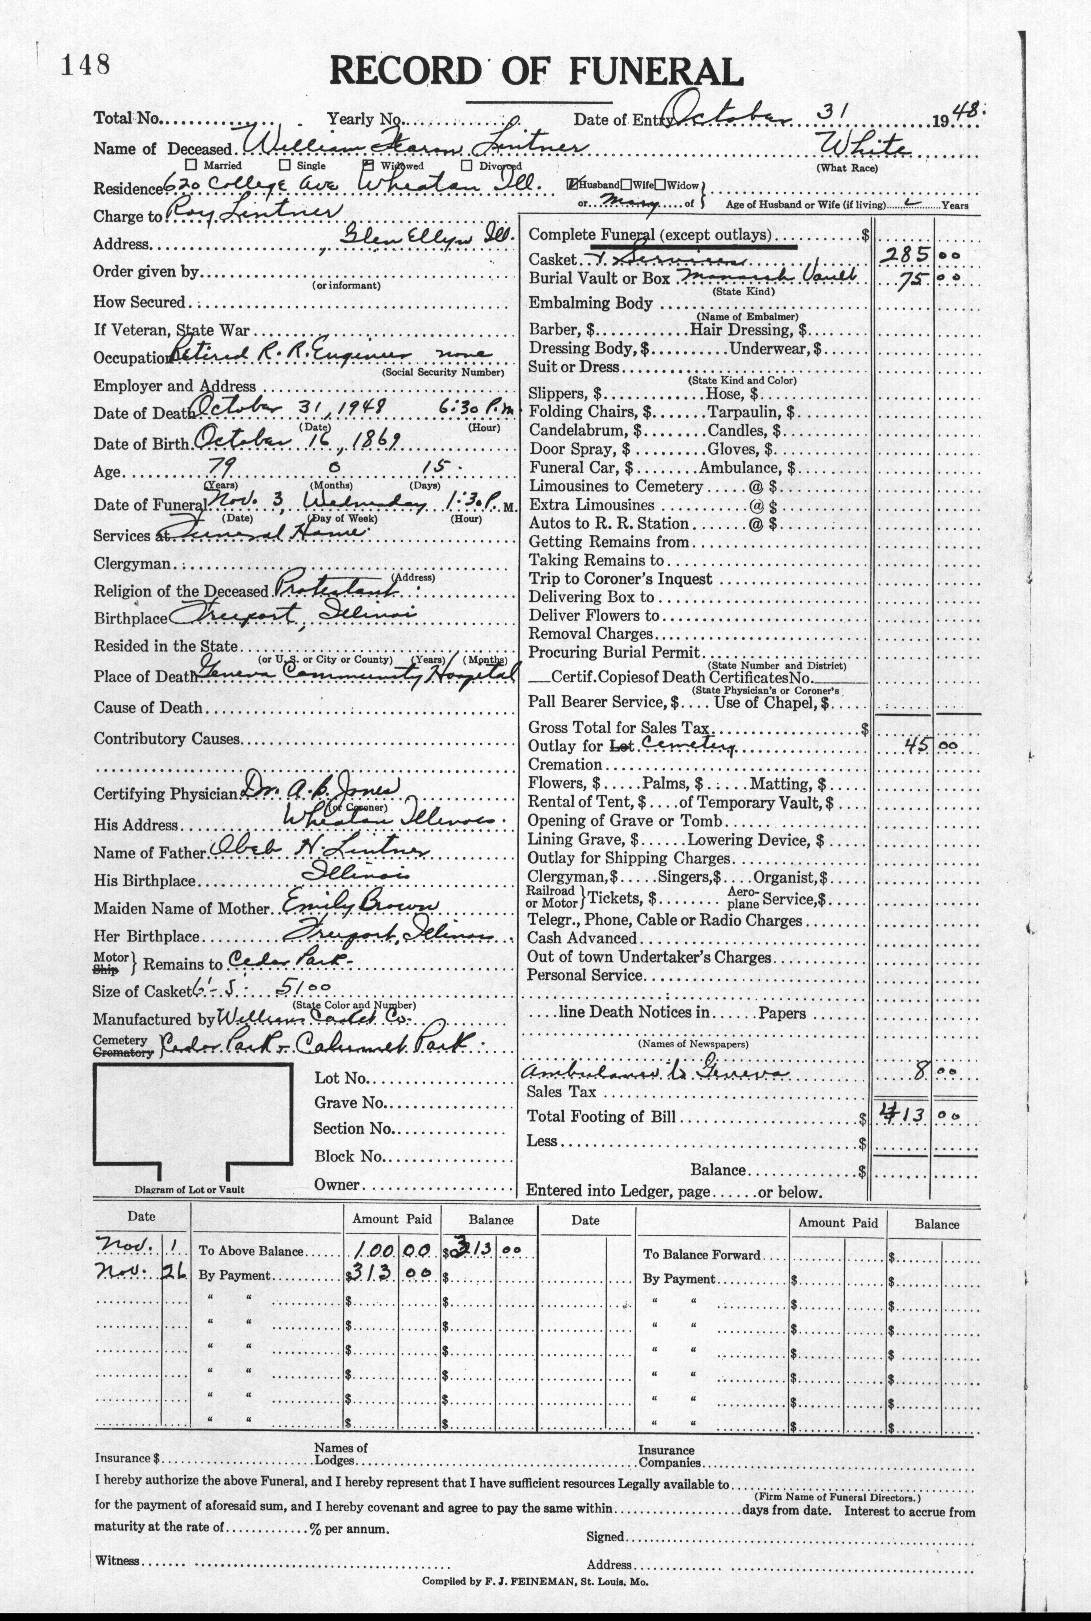 148
RECORD OF FUNERAL
Total No. Yearly No. Date of Entry October 31 1948.
Name of Deceased William Lintner White
☐ Married ☐ Single ☒ Widowed ☐ Divorced (What Race)
Residence 620 College Ave Wheaton Ill. ☑ Husband ☐ Wife ☐ Widow
or Mary of Age of Husband or Wife (if living) Years
Charge to Roy Lintner
Address, Glen Ellyn Ill.
Order given by
(or informant)
How Secured
If Veteran, State War
Occupation Retired R. R. Engineer none
(Social Security Number)
Employer and Address
Date of Death October 31, 1948 6:30 P.m
(Date) (Hour)
Date of Birth October 16, 1869
Age 79 0 15
(Years) (Months) (Days)
Date of Funeral Nov. 3, Wednesday 1:30 P. M.
(Date) (Day of Week) (Hour)
Services at Funeral Home
Clergyman
(Address)
Religion of the Deceased Protestant
Birthplace Freeport, Illinois
Resided in the State
(or U. S. or City or County) (Years) (Months)
Place of Death Geneva Community Hospital
Cause of Death
Contributory Causes
Certifying Physician Dr. A. B. Jones
(or Coroner)
His Address Wheaton Illinois.
Name of Father Obeb H. Lintner
His Birthplace Illinois
Maiden Name of Mother Emily Brown
Her Birthplace Freeport, Illinois
Motor
Ship } Remains to Cedar Park
Size of Casket 6'-5 5100
(State Color and Number)
Manufactured by Williams Casket Co.
Cemetery
Crematory } Cedar Park - Calumet Park.
Lot No.
Grave No.
Section No.
Block No.
Owner
Diagram of Lot or Vault
Complete Funeral (except outlays) $
Casket & Services 285 00
Burial Vault or Box Monarch Vault 75 00
(State Kind)
Embalming Body
(Name of Embalmer)
Barber, $ Hair Dressing, $
Dressing Body, $ Underwear, $
Suit or Dress
(State Kind and Color)
Slippers, $ Hose, $
Folding Chairs, $ Tarpaulin, $
Candelabrum, $ Candles, $
Door Spray, $ Gloves, $
Funeral Car, $ Ambulance, $
Limousines to Cemetery @ $
Extra Limousines @ $
Autos to R. R. Station @ $
Getting Remains from
Taking Remains to
Trip to Coroner's Inquest
Delivering Box to
Deliver Flowers to
Removal Charges
Procuring Burial Permit
(State Number and District)
Certif. Copies of Death Certificates No.
(State Physician's or Coroner's
Pall Bearer Service, $ Use of Chapel, $
Gross Total for Sales Tax $
Outlay for Lot Cemetery 45 00
Cremation
Flowers, $ Palms, $ Matting, $
Rental of Tent, $ of Temporary Vault, $
Opening of Grave or Tomb
Lining Grave, $ Lowering Device, $
Outlay for Shipping Charges
Clergyman, $ Singers, $ Organist, $
Railroad or Motor } Tickets, $ Aeroplane Service, $
Telegr., Phone, Cable or Radio Charges
Cash Advanced
Out of town Undertaker's Charges
Personal Service
line Death Notices in Papers
(Names of Newspapers)
Ambulance to Geneva 8 00
Sales Tax
Total Footing of Bill $ 413 00
Less $
Balance $
Entered into Ledger, page or below.
Date Amount Paid Balance Date Amount Paid Balance
Nov. 1 To Above Balance 100 00 $ 313 00 To Balance Forward $
Nov. 26 By Payment $ 313 00 $ By Payment $ $
" " $ $ " " $ $
" " $ $ " " $ $
" " $ $ " " $ $
" " $ $ " " $ $
" " $ $ " " $ $
" " $ $ " " $ $
Insurance $ Names of Lodges Insurance Companies
I hereby authorize the above Funeral, and I hereby represent that I have sufficient resources Legally available to
(Firm Name of Funeral Directors.)
for the payment of aforesaid sum, and I hereby covenant and agree to pay the same within days from date. Interest to accrue from
maturity at the rate of % per annum.
Signed
Witness Address
Compiled by F. J. FEINEMAN, St. Louis, Mo.